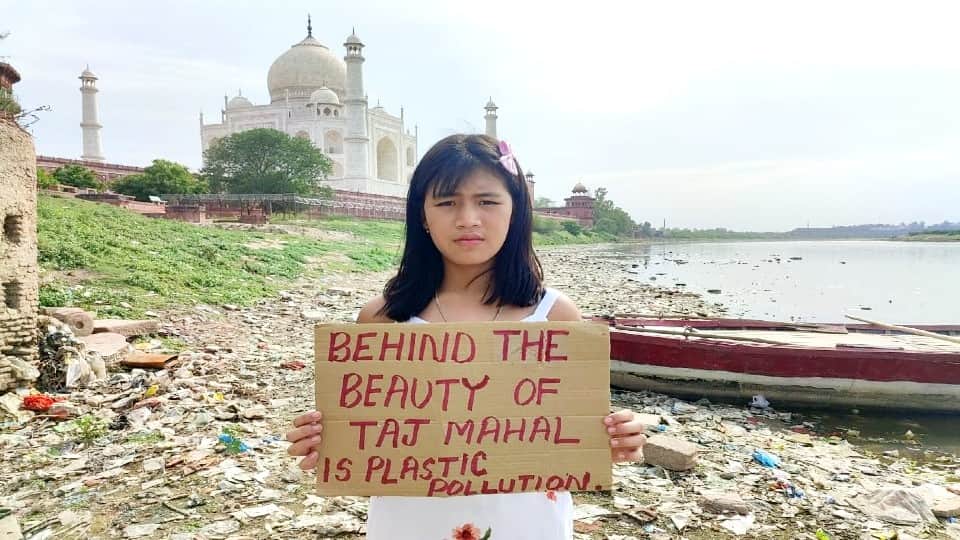 BEHIND THE
BEAUTY OF
TAJ MAHAL
IS PLASTIC
POLLUTION.